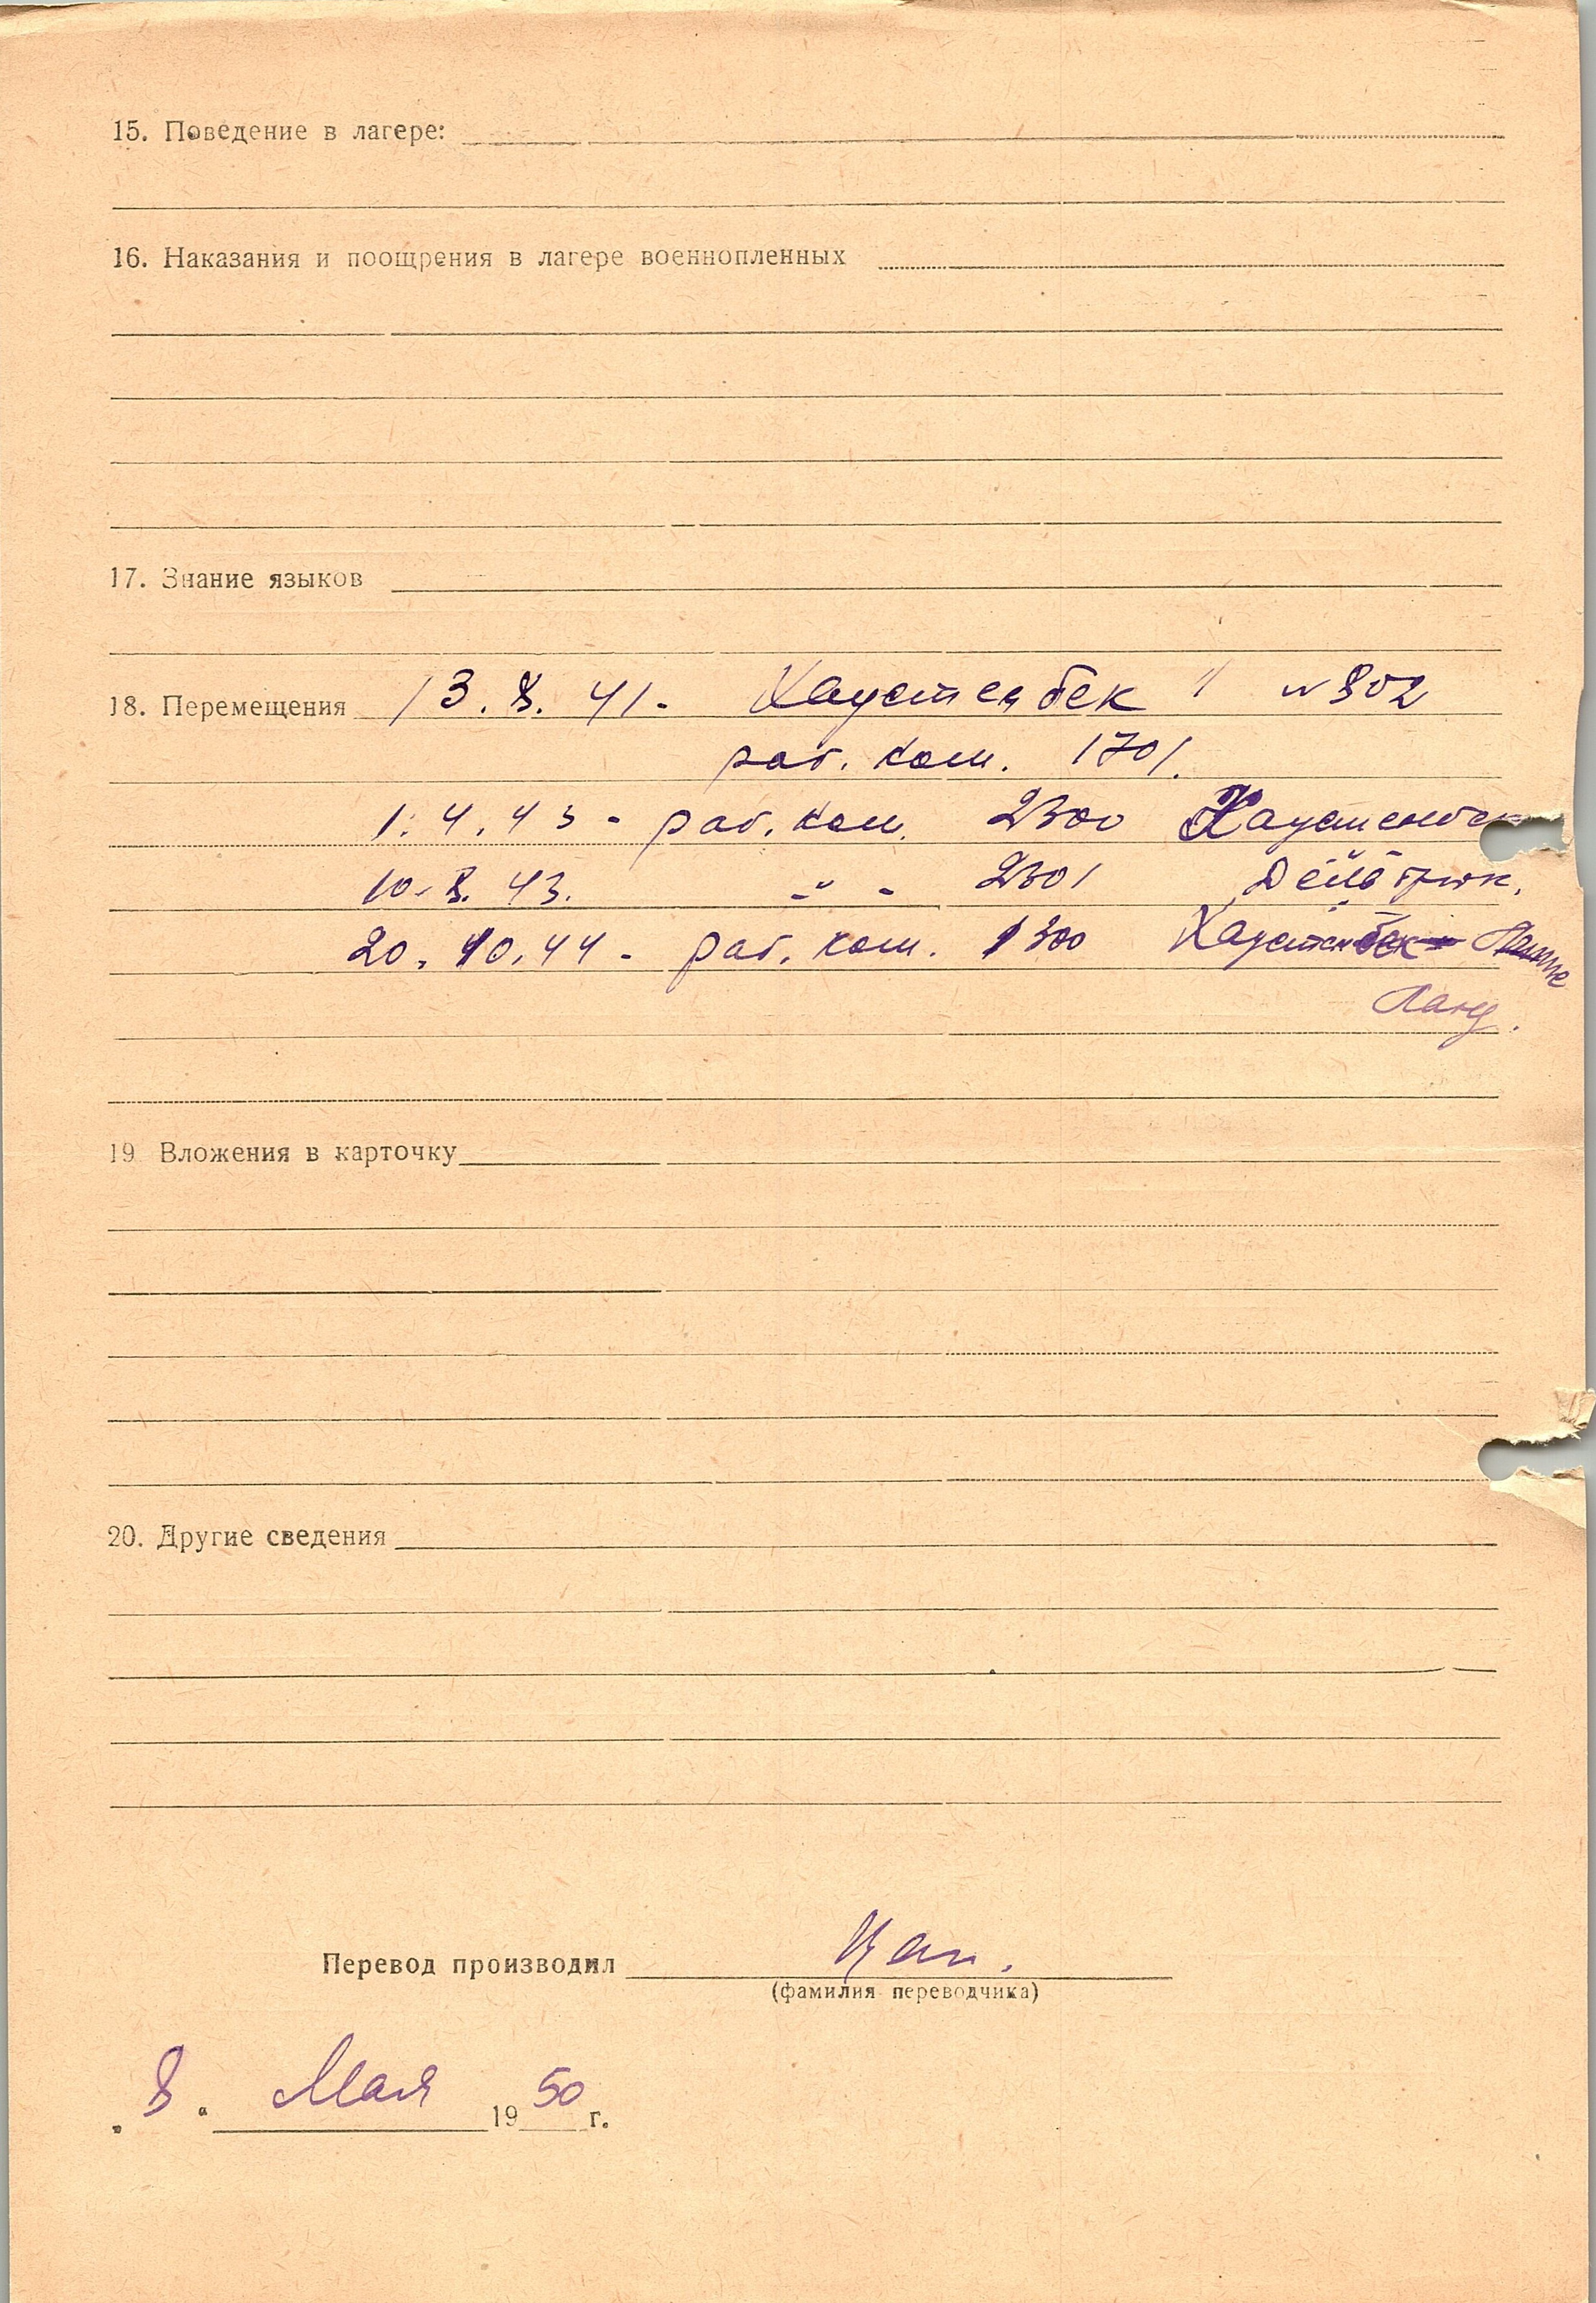 15. Поведение в лагере:
16. Наказания и поощрения в лагере военнопленных
17. Знание языков
18. Перемещения 13. 8. 41. Хаустенбек № 302
раб. ком. 1701.
1. 4. 43 - раб. ком. 2300 Хаустенбек
10. 8. 43. - " - 2301
20. 10. 44 - раб. ком. 1300 Хаустенбек
19 Вложения в карточку
20. Другие сведения
Перевод производил Цап.
(фамилия переводчика)
„ 8 “ Мая 19 50 г.